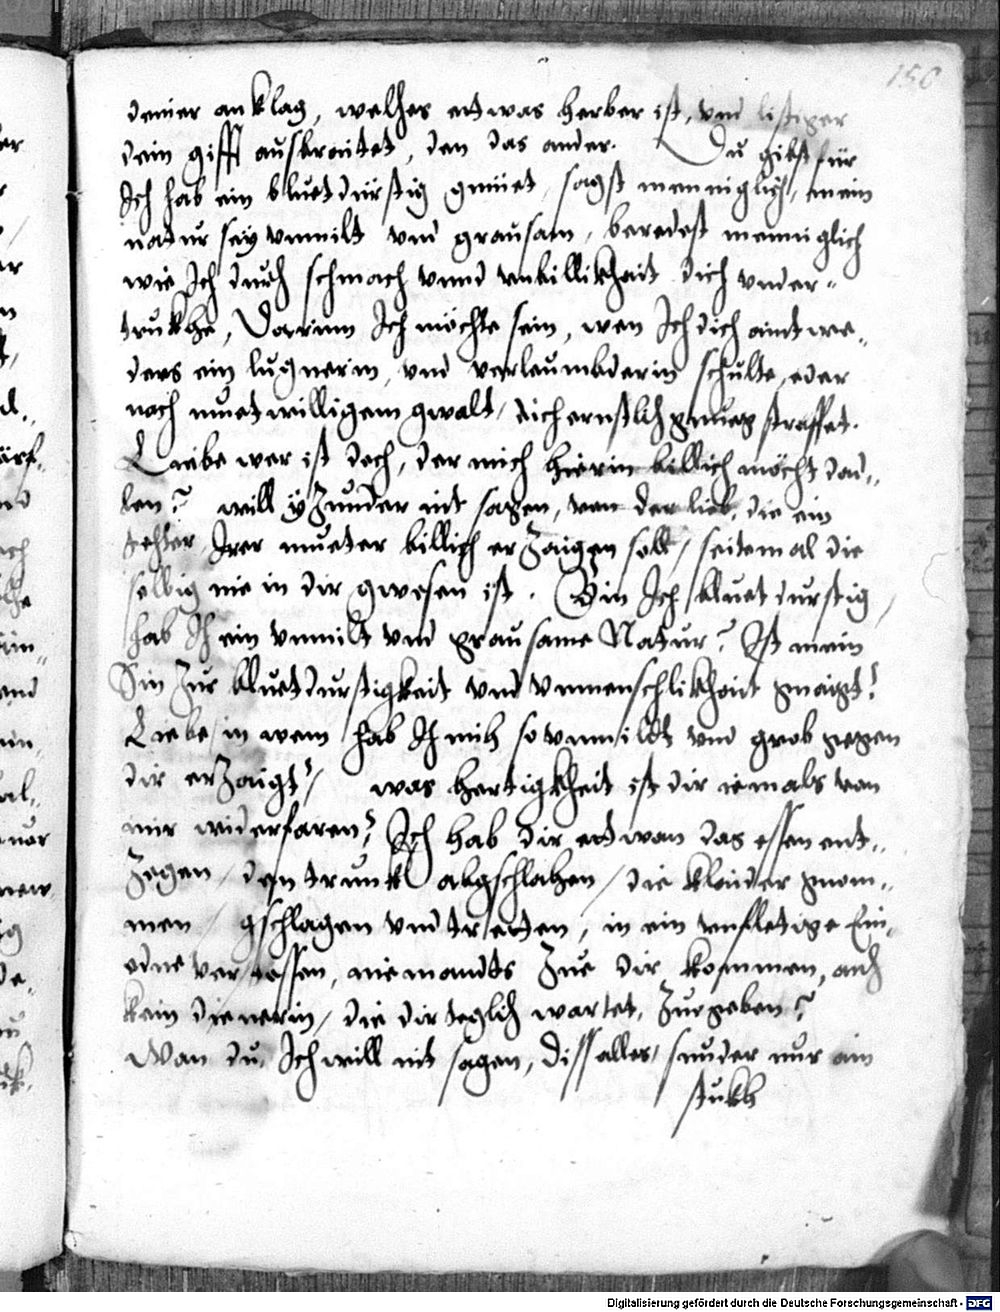 150
deiner anklag, welhes etwas herber ist, vnd listiger
dein gifft ausbraitet, den das ander. Du gibst für
Ich hab ein bluetdürstig gmüet, sagst menniglich, mein
natur sey vnmilt vnd grausam, beredest menniglich
wie Ich durch schmach vnnd vnbillikhait dich vnder-
trukhe, Darumb Ich möchte sein, wen Ich dich aintwe-
ders ein lugnerin, vnd verleumbderin schulte, oder
nach muetwilligem gwalt, dich ernstlich gnueg straffet.
Liebe wer ist doch, der mich hierin billich möcht dad-
len? will yzunder nit sagen, von der lieb, die ein
tohter Irer mueter billich erzaigen soll, seitemal die
selbig nie in dir gwesen ist. Bin Ich bluetdurstig,
hab Ich ein vnmilt vnd grausame Natur? Ist mein
Sin zur bluetdurstigkeit vnd vnmenschlikhait gnaigt?
Liebe in wem hab Ich mich so vnmildt vnd grob gegen
dir erzaigt? was hertigkheit ist dir iemals von
mir widerfaren? Ich hab dir etwan das essen ent-
zogen, den trunk abgschlahen, die klaider gnom-
men, gschlagen vnd tretten, in ein vnfletige Ein-
edne verstossen, niemandts zue dir kommen, auch
kein dienerin, die dir teglich wartet, zuegeben?
Wan du, Ich will nit sagen, diss alles, sunder nur ain
stukh
Digitalisierung gefördert durch die Deutsche Forschungsgemeinschaft - DFG